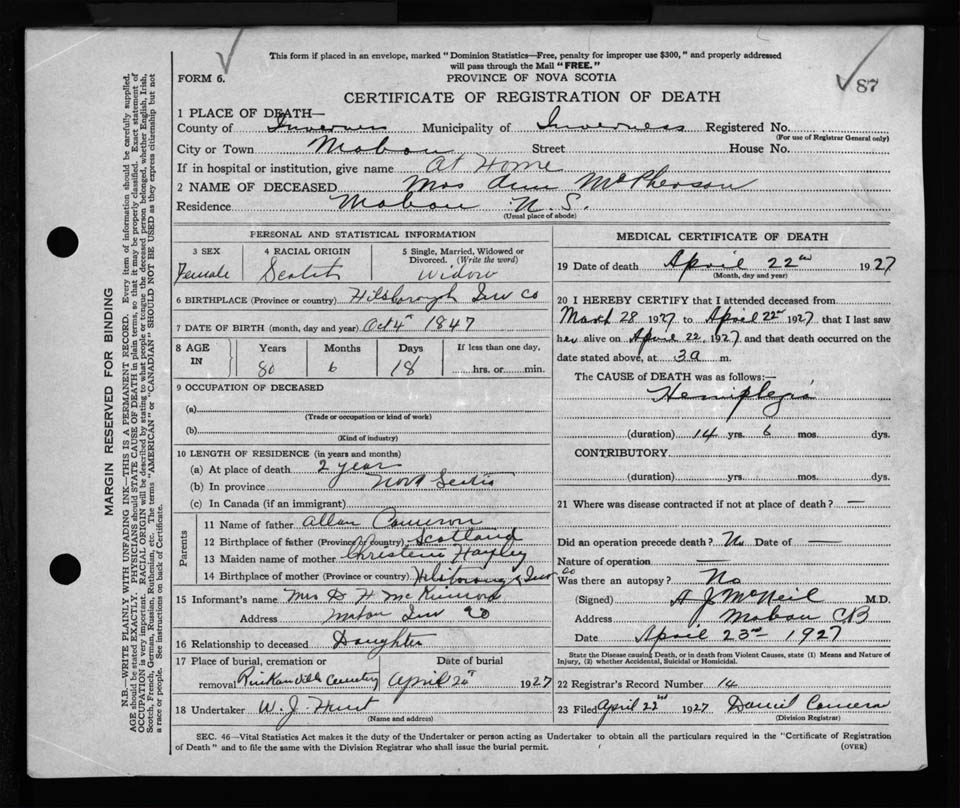 This form if placed in an envelope, marked "Dominion Statistics—Free, penalty for improper use $300," and properly addressed
will pass through the Mail "FREE."
FORM 6.
PROVINCE OF NOVA SCOTIA
87
CERTIFICATE OF REGISTRATION OF DEATH
1 PLACE OF DEATH—
County of Inverness Municipality of Inverness Registered No.
(For use of Registrar General only)
City or Town Mabou Street House No.
If in hospital or institution, give name At Home
2 NAME OF DECEASED Mrs Ann McPherson
Residence Mabou N.S.
(Usual place of abode)
PERSONAL AND STATISTICAL INFORMATION
3 SEX 4 RACIAL ORIGIN 5 Single, Married, Widowed or
Divorced. (Write the word)
Female Scotch Widow
6 BIRTHPLACE (Province or country) Hilsborough Inv Co
7 DATE OF BIRTH (month, day and year) Oct 4th 1847
8 AGE IN Years Months Days If less than one day,
80 6 18 hrs. or min.
9 OCCUPATION OF DECEASED
(a)
(Trade or occupation or kind of work)
(b)
(Kind of industry)
10 LENGTH OF RESIDENCE (in years and months)
(a) At place of death 2 year
(b) In province Nova Scotia
(c) In Canada (if an immigrant)
Parents
11 Name of father Allan Cameron
12 Birthplace of father (Province or country) Scotland
13 Maiden name of mother Christein Hayley
14 Birthplace of mother (Province or country) Hilsborough Inv Co
15 Informant's name Mrs D H McKinnon
Address Mabou Inv Co
16 Relationship to deceased Daughter
17 Place of burial, cremation or Date of burial
removal Cemetry April 1927
18 Undertaker W. J. Hunt
(Name and address)
MEDICAL CERTIFICATE OF DEATH
19 Date of death April 22nd 1927
(Month, day and year)
20 I HEREBY CERTIFY that I attended deceased from
March 28 1927 to April 22nd 1927 that I last saw
her alive on April 22, 1927 and that death occurred on the
date stated above, at 3 a m.
The CAUSE OF DEATH was as follows:—
Hemiplegia
(duration) 14 yrs. 6 mos. dys.
CONTRIBUTORY
(duration) yrs. mos. dys.
21 Where was disease contracted if not at place of death? —
Did an operation precede death? No Date of —
Nature of operation —
Was there an autopsy? No
(Signed) A J McNeil M.D.
Address Mabou CB
Date April 23rd 1927
State the Disease causing Death, or in death from Violent Causes, state (1) Means and Nature of
Injury, (2) whether Accidental, Suicidal or Homicidal.
22 Registrar's Record Number 14
23 Filed April 22nd 1927 Daniel Cameron
(Division Registrar)
SEC. 46—Vital Statistics Act makes it the duty of the Undertaker or person acting as Undertaker to obtain all the particulars required in the "Certificate of Registration
of Death" and to file the same with the Division Registrar who shall issue the burial permit.
(OVER)
MARGIN RESERVED FOR BINDING
N.B.—WRITE PLAINLY WITH UNFADING INK—THIS IS A PERMANENT RECORD. Every item of information should be carefully supplied.
AGE should be stated EXACTLY. PHYSICIANS should STATE CAUSE OF DEATH in plain terms, so that it may be properly classified. Exact statement of
OCCUPATION is very important. RACIAL ORIGIN will be described by stating to what people or tongue the deceased person belonged, whether English, Irish,
Scotch, French, German, Russian, Ruthenian, etc. The terms "AMERICAN" or "CANADIAN" SHOULD NOT BE USED as they express citizenship but not
a race or people. See instructions on back of Certificate.